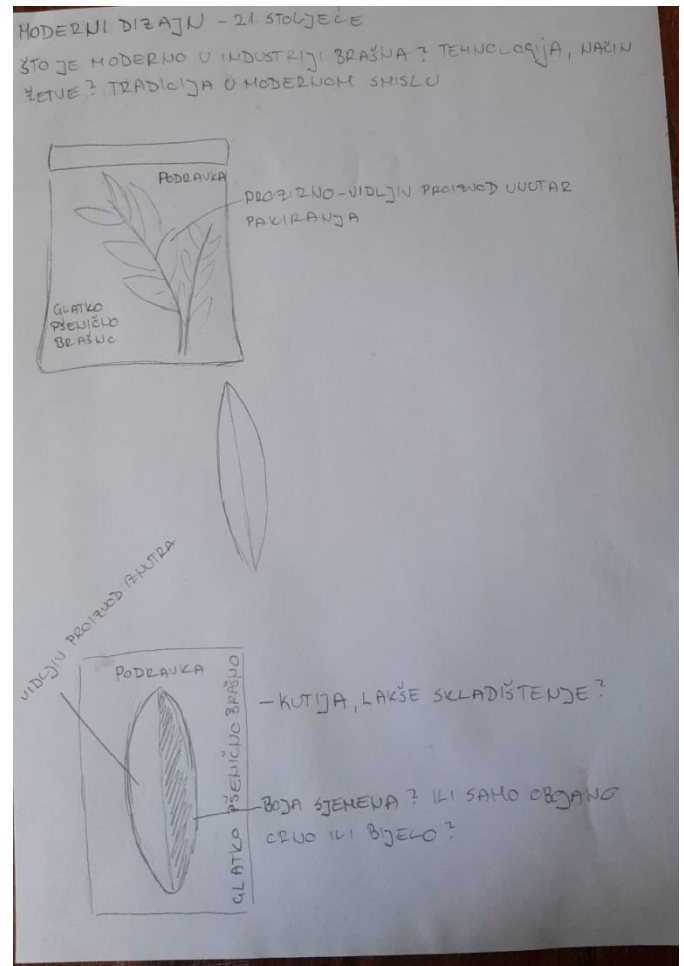 MODERNI DIZAJN - 21. STOLJEĆE
ŠTO JE MODERNO U INDUSTRIJI BRAŠNA? TEHNOLOGIJA, NAČIN
ŽETVE? TRADICIJA U MODERNOM SMISLU
PODRAVKA
PROZIRNO-VIDLJIV PROIZVOD UNUTAR
PAKIRANJA
GLATKO
PŠENIČNO
BRAŠNO
VIDLJIV PROIZVOD IZNUTRA
PODRAVKA
GLATKO PŠENIČNO BRAŠNO
- KUTIJA, LAKŠE SKLADIŠTENJE?
- BOJA SJEMENA? ILI SAMO OBOJANO
CRNO ILI BIJELO?